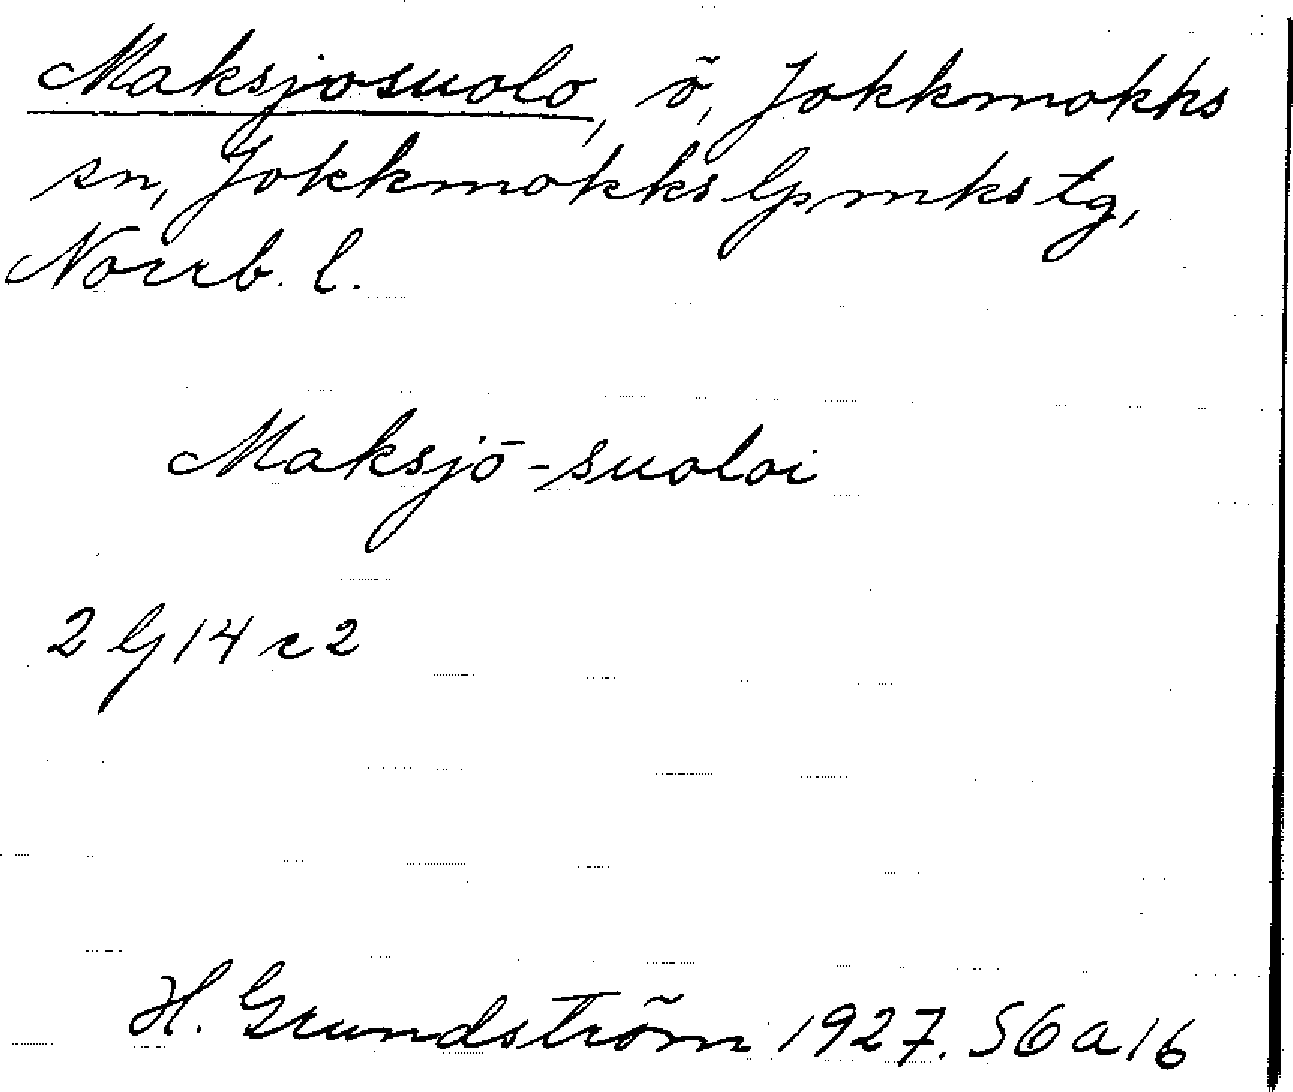 Maksjosuolo, ö, Jokkmokks
sn, Jokkmokks lpmks tg,
Norrb. l.
Maksjō-suoloi
2 G 14 c 2
H. Grundström 1927. S6a16